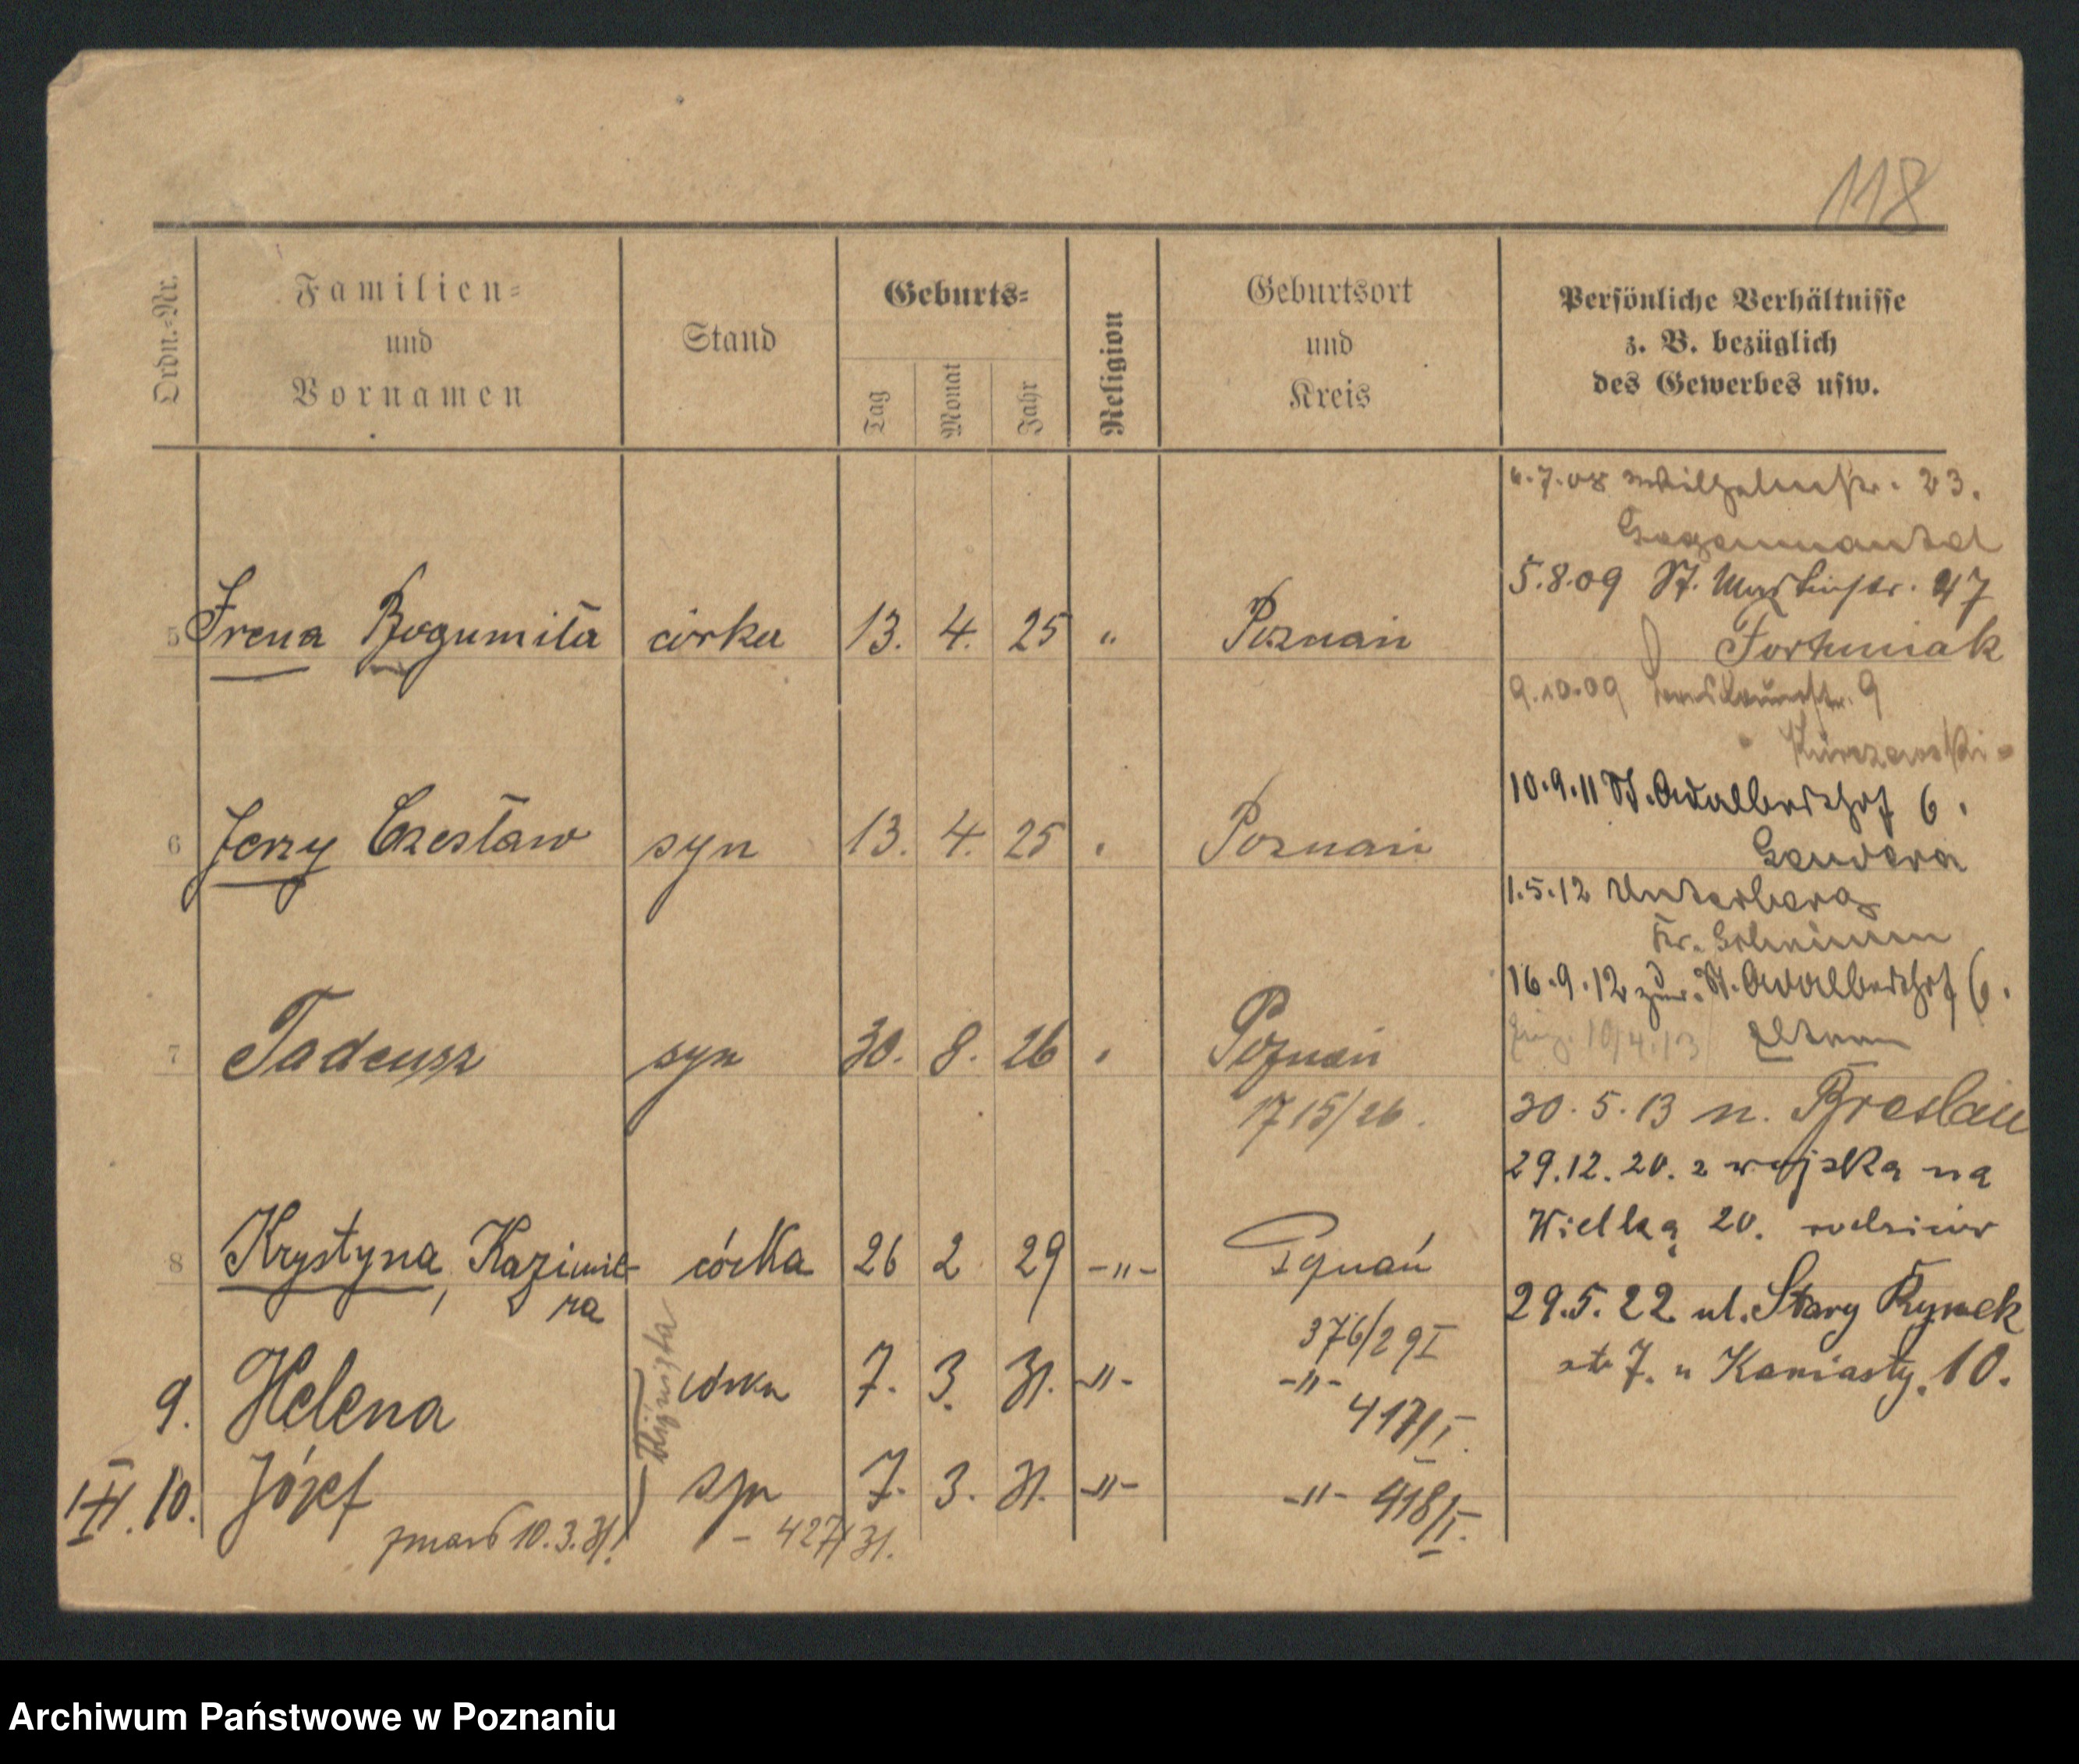 118
Ordn.-Nr.
Familien-
und
Vornamen
Stand
Geburts-
Tag
Monat
Jahr
Religion
Geburtsort
und
Kreis
Persönliche Verhältnisse
z. B. bezüglich
des Gewerbes usw.
5 Irena Bogumiła córka 13. 4. 25 " Poznań
6 Jerzy Czesław syn 13. 4. 25 " Poznań
7 Tadeusz syn 30. 8. 26 " Poznań
1715/26.
8 Krystyna, Kazimie- córka 26 2 29 -"- Poznań
ra
376/29 I
9. Helena córka 7. 3. 31. -"- -"-
417/I.
III. 10. Józef syn 7. 3. 31. -"- -"- 418/I.
zmarł 10.3.31. - 427/31.
Bliźnięta
6.7.08 Wilhelmstr. 23.
5.8.09 St. Martinstr. 47
Fortuniak
9.10.09 9
10.9.11 St. Adalberthof 6.
Gendera
1.5.12 Unterberg
Kr. Schrimm
16.9.12 zur. St. Adalberthof 6.
Eltern
10/4.13
30.5.13 n. Breslau
29.12.20. z wojska na
Wielką 20. rodziców
29.5.22 ul. Stary Rynek
7. u Kaniasty. 10.
Archiwum Państwowe w Poznaniu